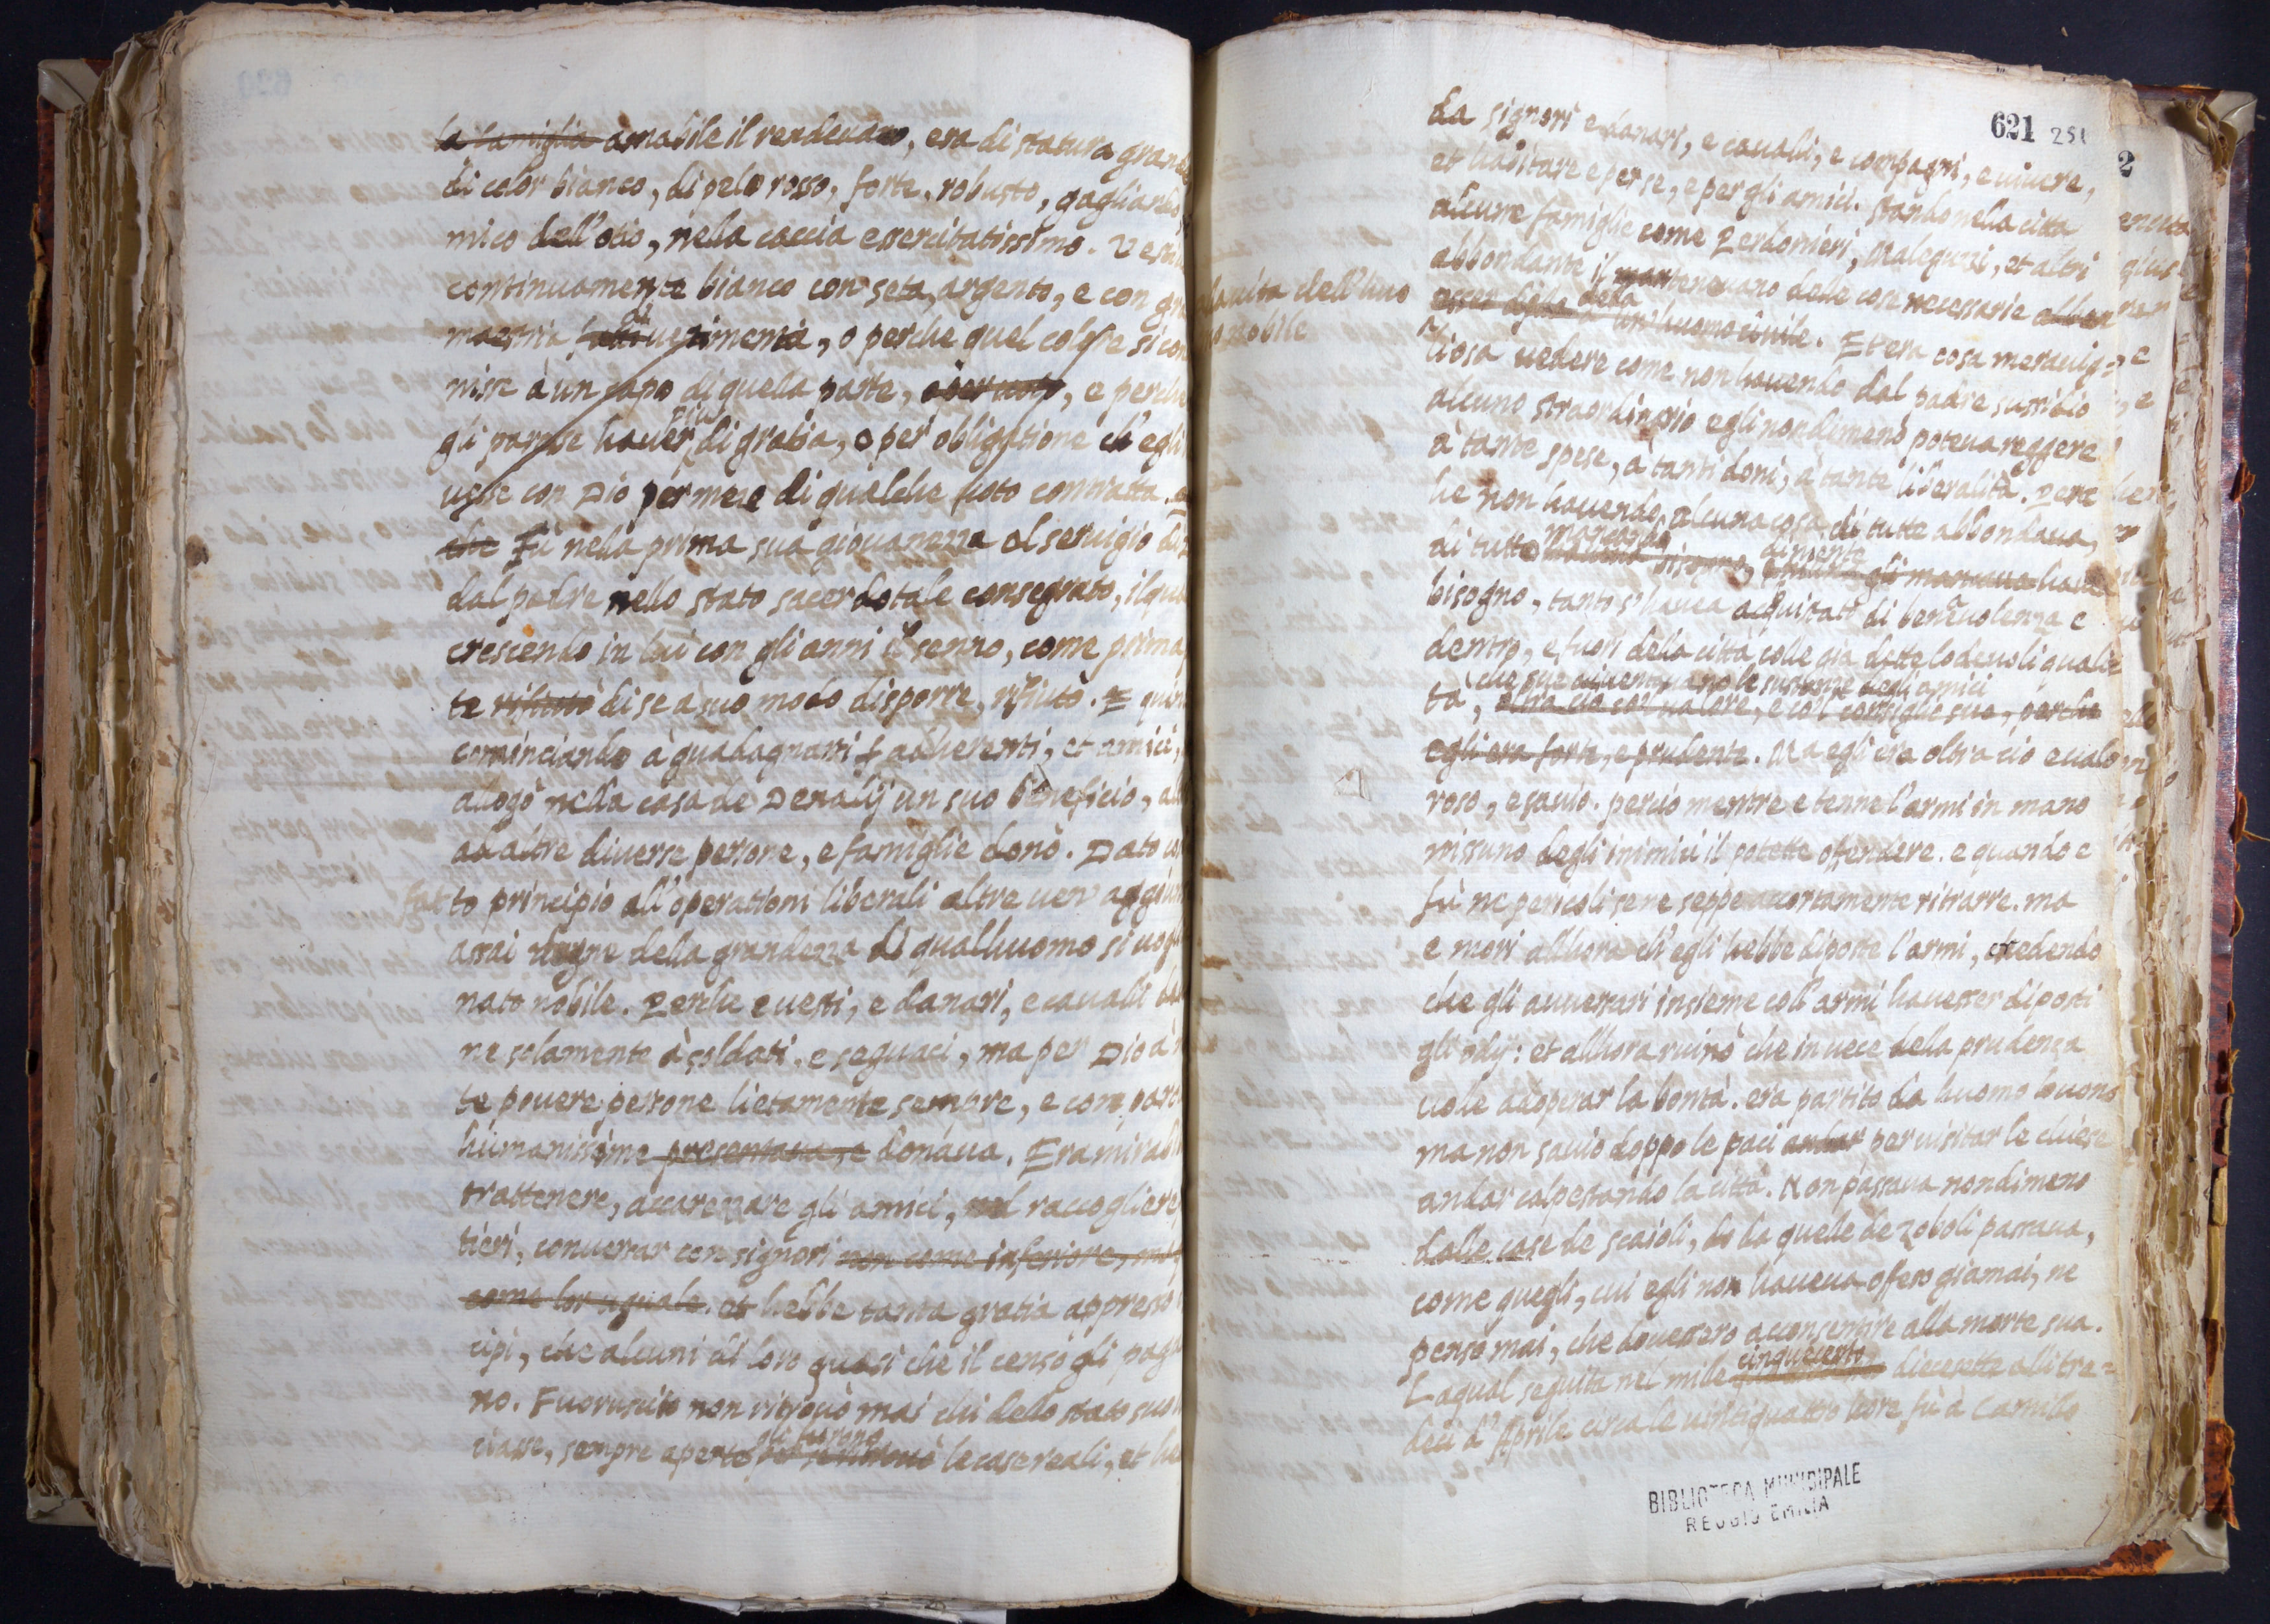 la famiglia amabile il rendevano, era di statura grande
di color bianco, di pelo rosso, forte, robusto, gagliardo,
mico dell'otio, nella caccia essercitatissimo. Vesti
continuamente bianco con seta, argento, e con gra
maestria vestimenta, o perche quel colore si con
nisse à un capo di quella parte, e perche
gli paresse haver più di gratia, o per obligatione ch'egli
con Dio per mezo di qualche voto contratta.
che Fù nella prima sua giovanezza al servigio di
dal padre nello stato sacerdotale consegrato, il qua
crescendo in lui con gli anni il senno, come prima
te rifiutò di se a suo modo disporre, rifiutò. E quin
cominciando à guadagnarsi adherenti, et amici,
allogò nella casa de Denalij un suo beneficio, al
ad altre diverse persone, e famiglie donò. Dato co
fatto principio all'operationi liberali altre ven aggiun
assai degne della grandezza di qual huomo si vogl
nato nobile. Perche e vesti, e danari, e cavalli
ne solamente à soldati, e seguaci, ma per Dio à
te povere persone lietamente sempre, e con parol
humanissime presentava, e donava. Era mirabil
trattenere, accarezzare gli amici, nel raccogliere
tieri, conversar con signori non come inferiore, ma
come lor uguale. et hebbe tanta gratia appresso
cipi, che alcuni di loro quasi che il censo gli paga
no. Fuoruscito non ritrovò mai chi dello stato suo
ciasse, sempre aperte gli furono le case reali, et
621 251
da signori e danari, e cavalli, e compagni, e vivere,
et habitare e per se, e per gli amici. Stando nella citta
alcune famiglie come Zerbonieri, Maleguzzi, et altri
abbondante il mantenevano delle cose necessarie
della huomo civile. Et era cosa meravig=
liosa vedere come non havendo dal padre sussidio
alcuno straordinario egli nondimeno poteva reggere
à tante spese, à tanti doni, à tante liberalità. Perc
he non havendo alcuna cosa di tutte abbondava,
di tutte bisogno,
bisogno, tanto s'havea acquistato di benevolenza e
dentro, e fuori della città colle gia dette lodevoli quali
che sue le sustanze degli amici
tà, oltra ciò col valore, e col consiglio suo, perche
egli era forte, e prudente. Ma egli era oltra ciò e valo
roso, e savio. perciò mentre e tenne l'armi in mano
nissuno degli inimici il potette offendere. e quando e
fù ne pericoli se ne seppe accortamente ritrarre. ma
e morì allhora ch'egli hebbe diposte l'armi, credendo
che gli avversari insieme coll'armi havesser diposti
gli odij: et allhora ruinò che in vece della prudenza
volle adoperar la bontà. era partito da huomo buono
ma non savio doppo le paci andar per visitar le chiese
andar calpestando la città. Non passava nondimeno
dalle case de scaioli, da quelle de Zoboli passava,
come quegli, cui egli non haveva offeso giamai, ne
penso mai, che dovessero acconsentire alla morte sua.
cinquecento
La qual seguita nel mille diecesette alli tre=
deci d'Aprile circa le vintiquattro hore fù à Camillo
dell'huo
mo nobile
BIBLIOTECA MUNICIPALE
REGGIO EMILIA